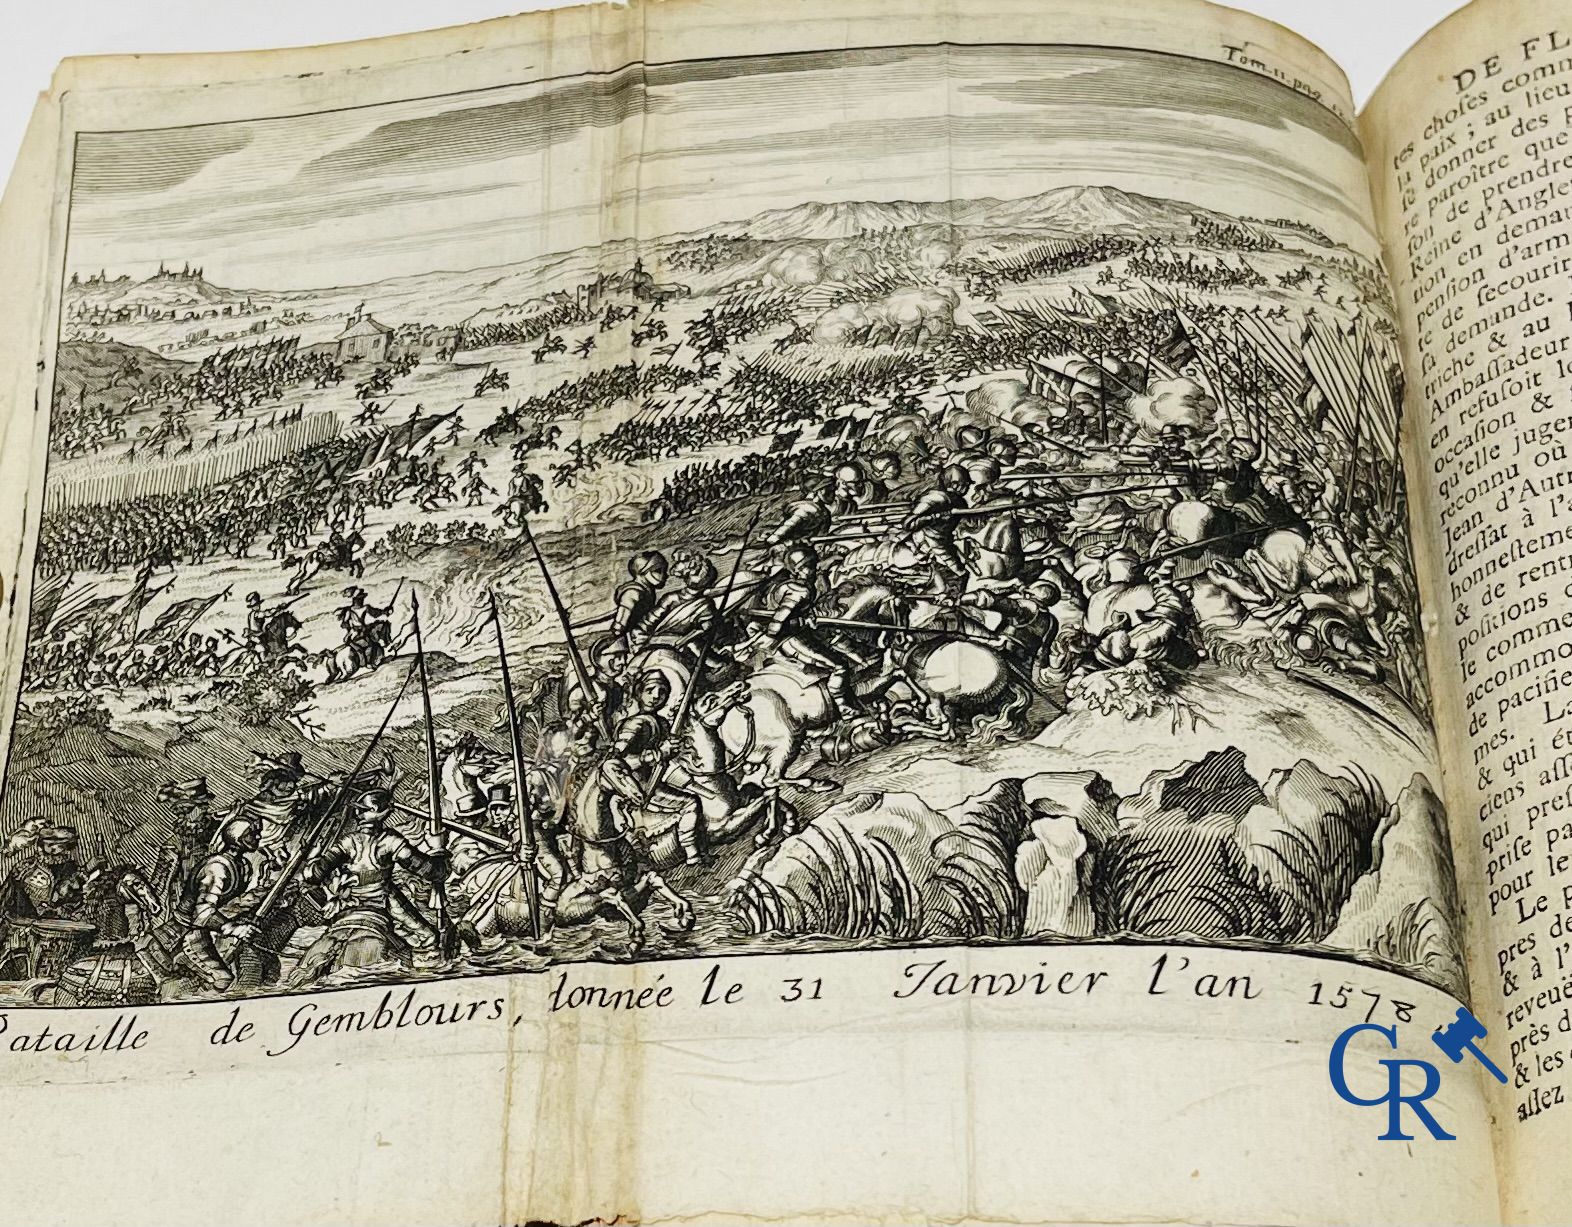 Tom. II. pag.
Bataille de Gemblours, donnée le 31 Janvier l'an 1578.
DE FL
tes choses comm
la paix ; au lieu
donner des p
re paroître que
son de prendre
Reine d'Angle
non en deman
pension d'arm
te de secourir
sa demande.
triche & au
Ambassadeur
en refusoit l
occasion &
qu'elle juger
reconnu où
Jean d'Autr
dressât à l'a
honnesteme
& de rentr
positions
le comme
accommo
de pacifie
mes. La
& qui ét
ciens ass
qui pres
prise pa
pour le
Le p
pres de
& à l'
reveuë
près d
& les
assez
CR